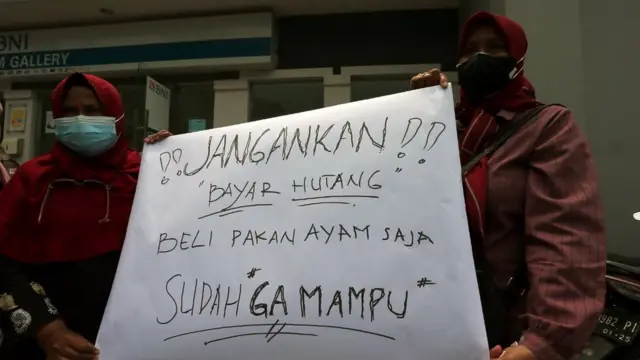 BNI
M GALLERY
BNI
!! JANGANKAN !!
"BAYAR HUTANG"
BELI PAKAN AYAM SAJA
SUDAH "GA MAMPU"
982 PI
01·25